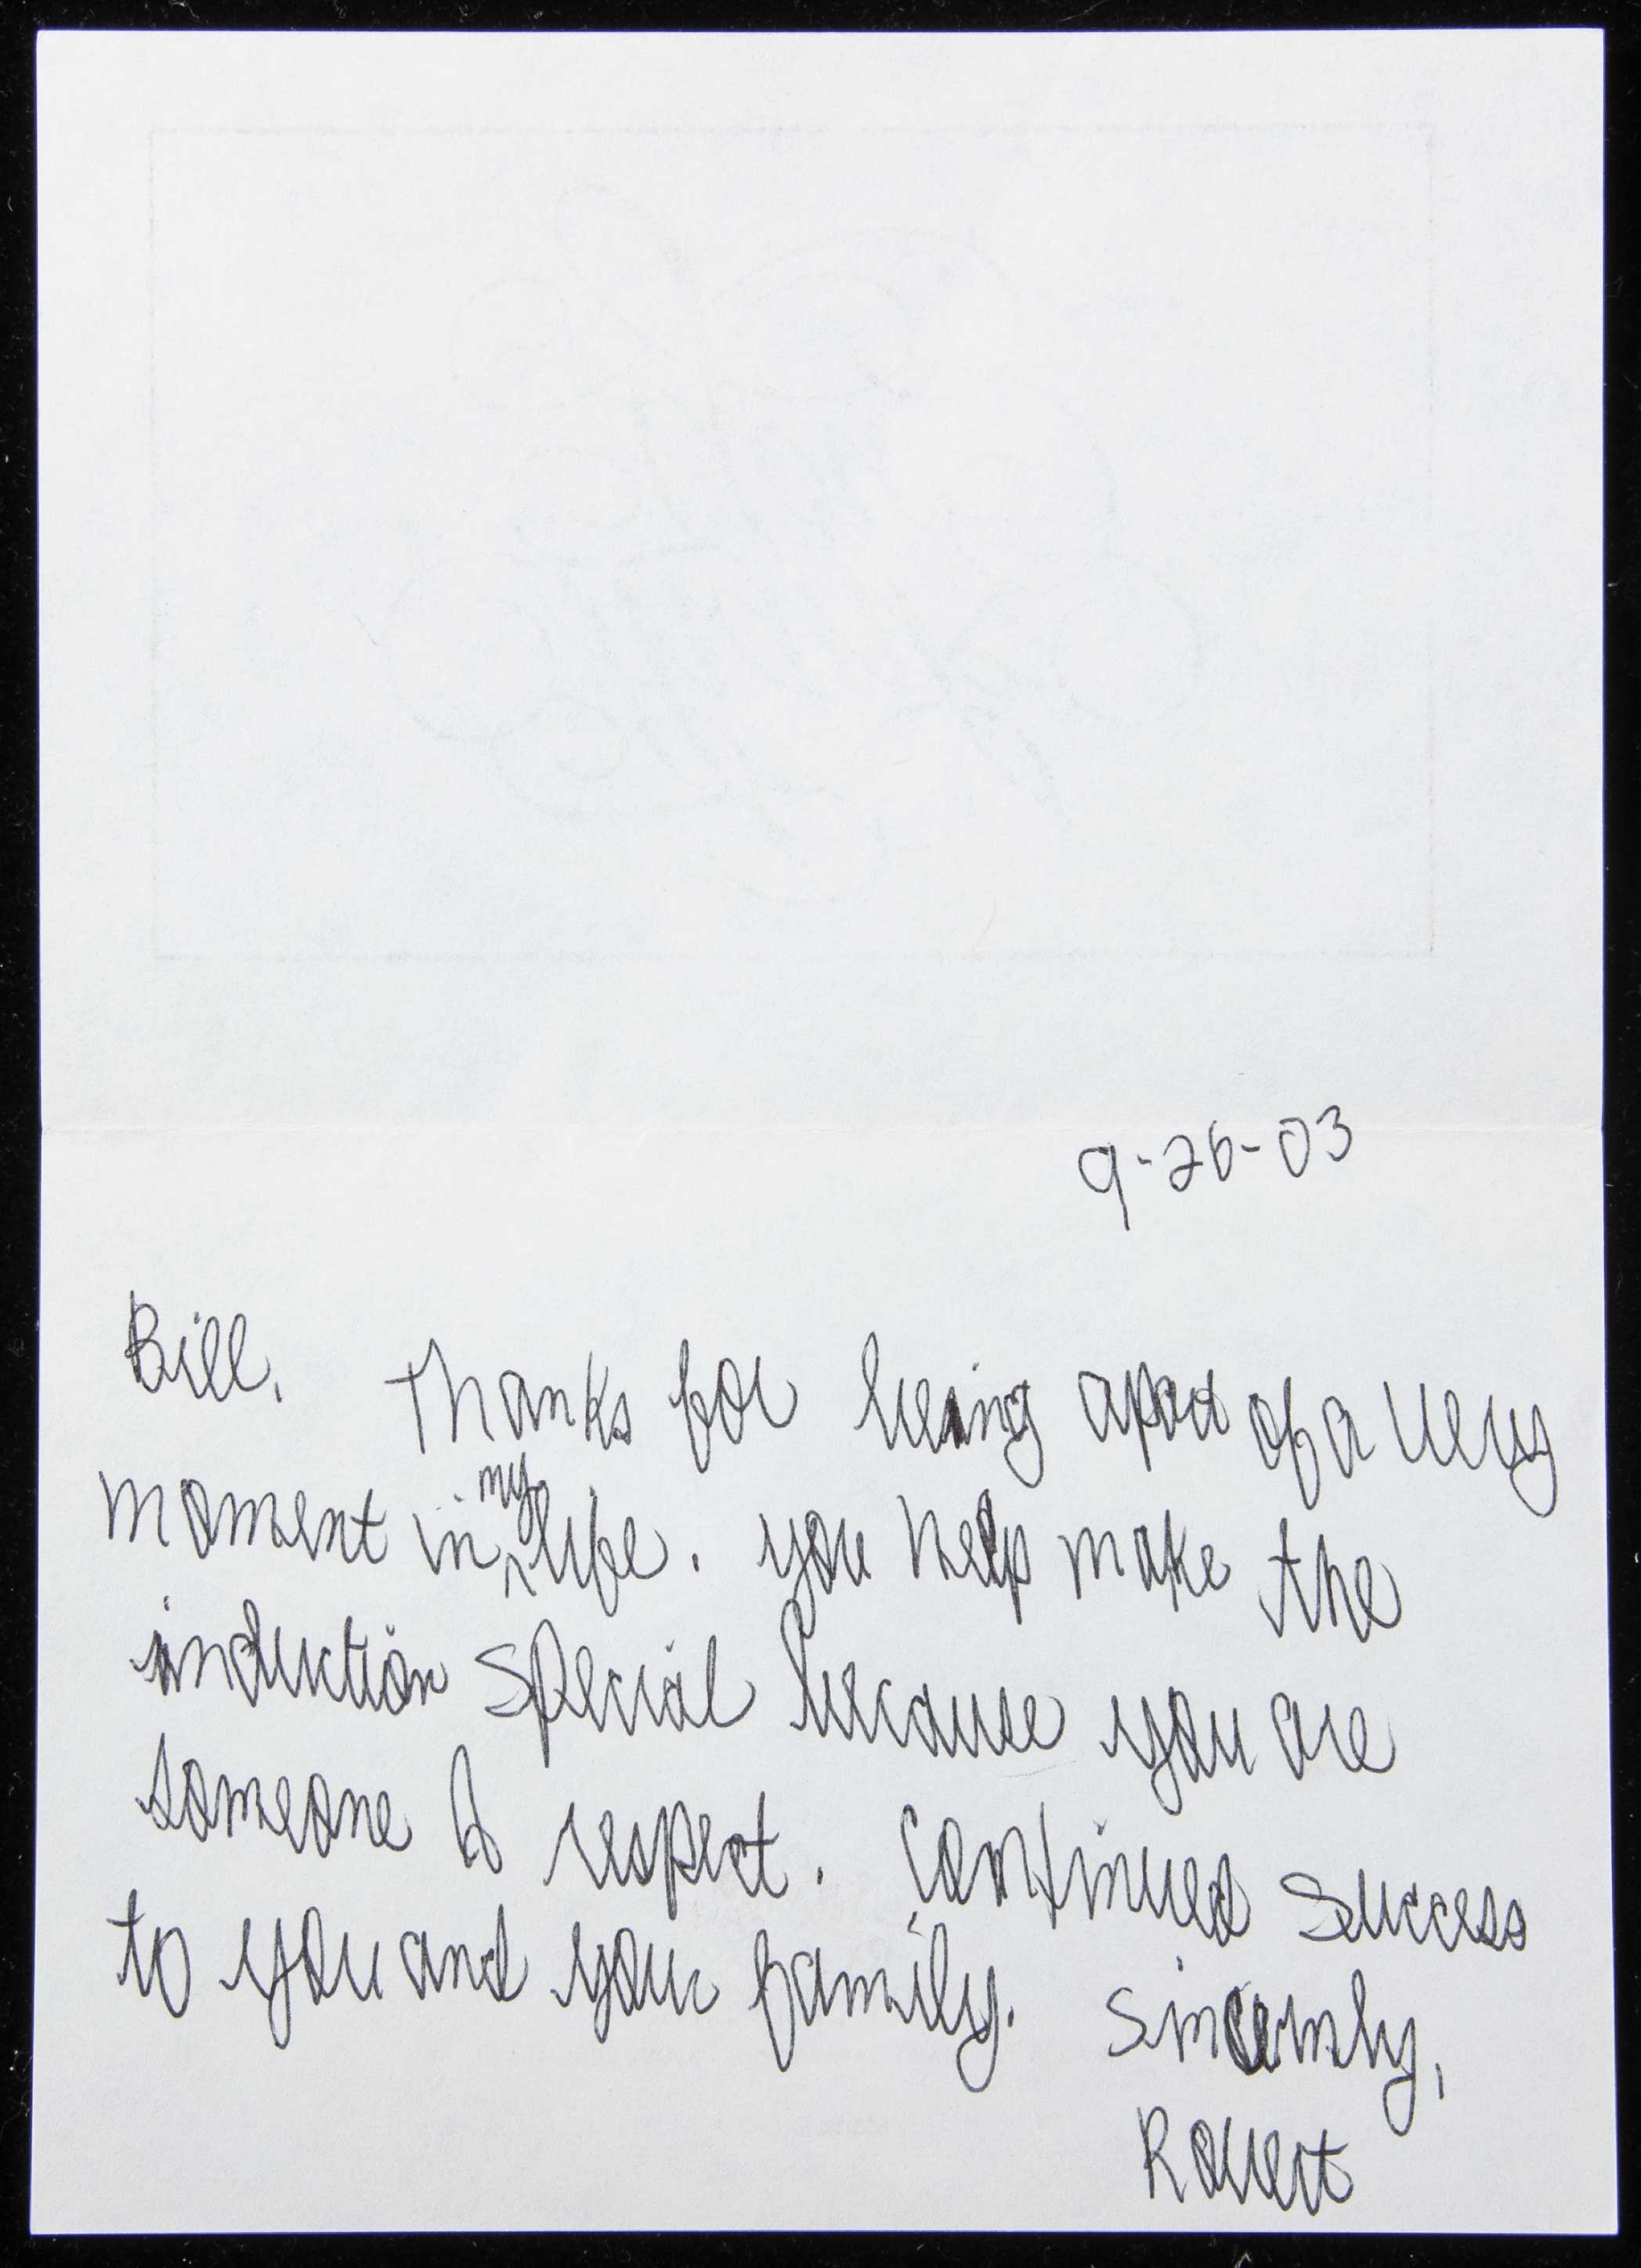 9-26-03
Bill, Thanks for being apart of a very
moment in my life. you help make the
induction special because you are
someone I respect. Continued success
to you and your family. Sincerely,
Robert